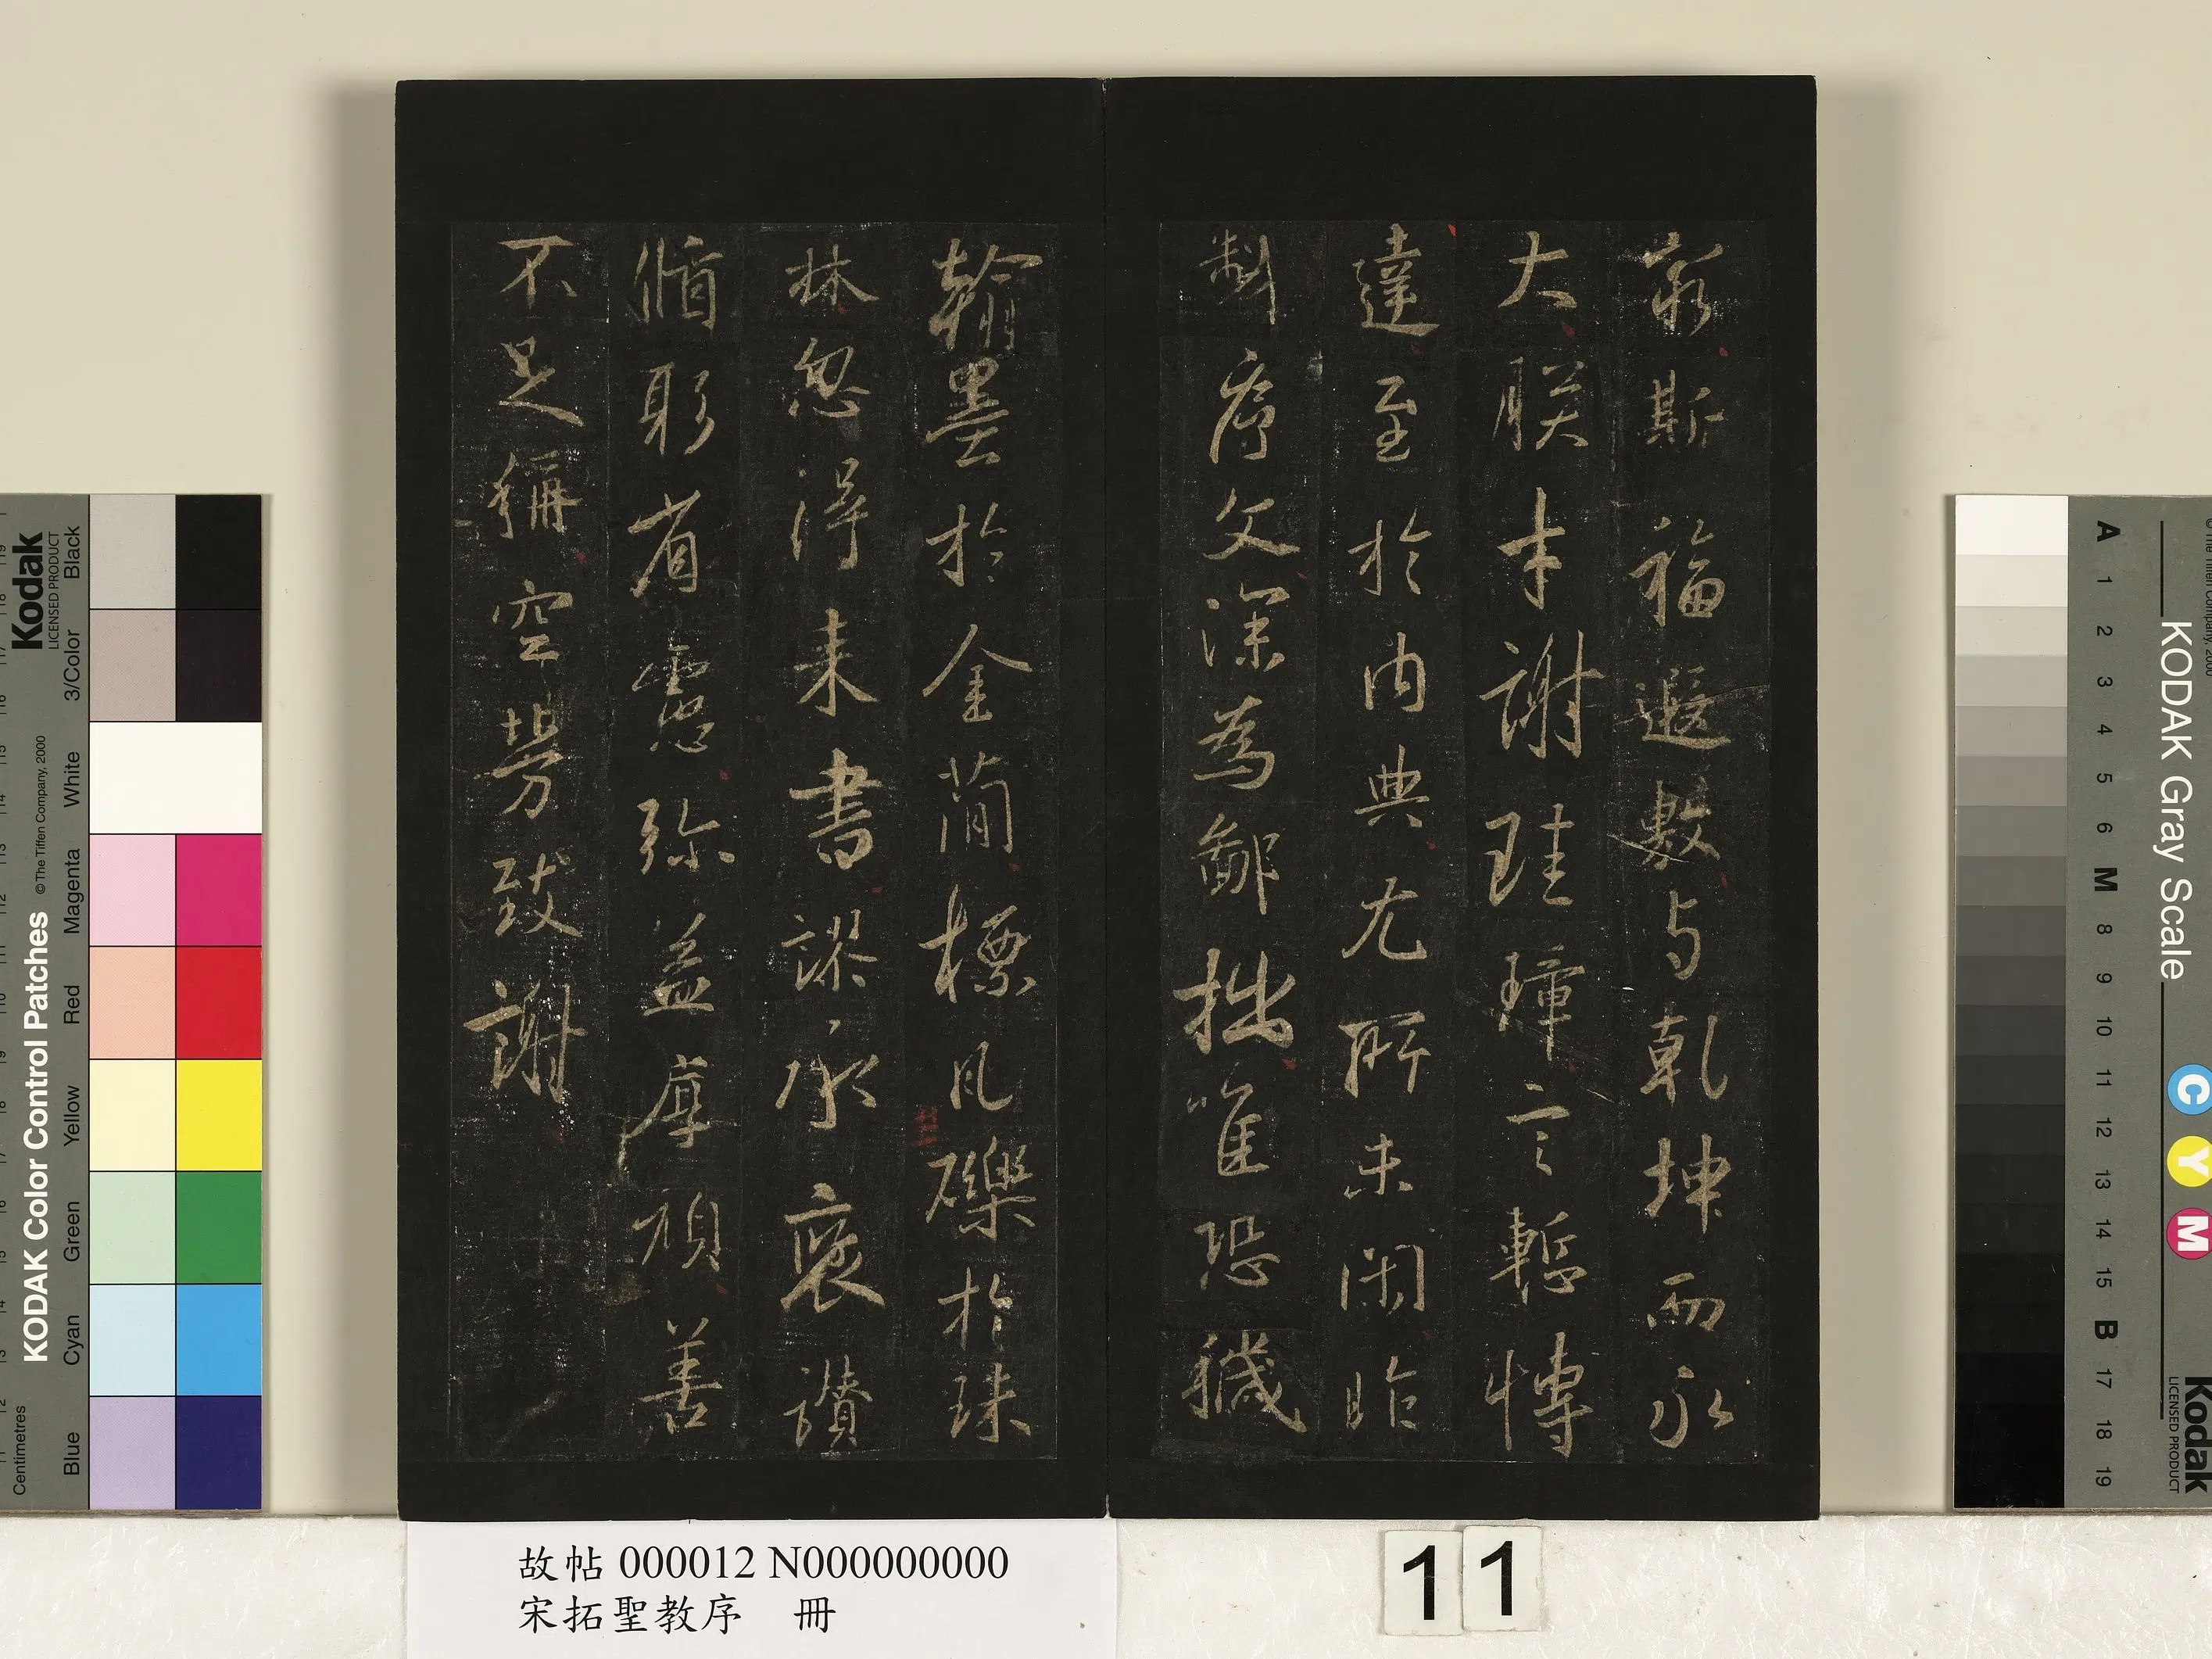 窮斯福遐敷与乾坤而永
大朕才謝珪璋言慙博
達至於內典尤所未閑昨
製序文深為鄙拙唯恐穢
翰墨於金簡標瓦礫於珠
林忽得来書謬承褒讚
循躬省慮弥益厚顏善
不足稱空勞致謝
故帖 000012 N000000000
宋拓聖教序 冊
11
KODAK Color Control Patches
Kodak
LICENSED PRODUCT
© The Tiffen Company, 2000
Centimetres
Blue Cyan Green Yellow Red Magenta White 3/Color Black
KODAK Gray Scale
Kodak
LICENSED PRODUCT
C Y M
A 1 2 3 4 5 6 M 8 9 10 11 12 13 14 15 B 17 18 19